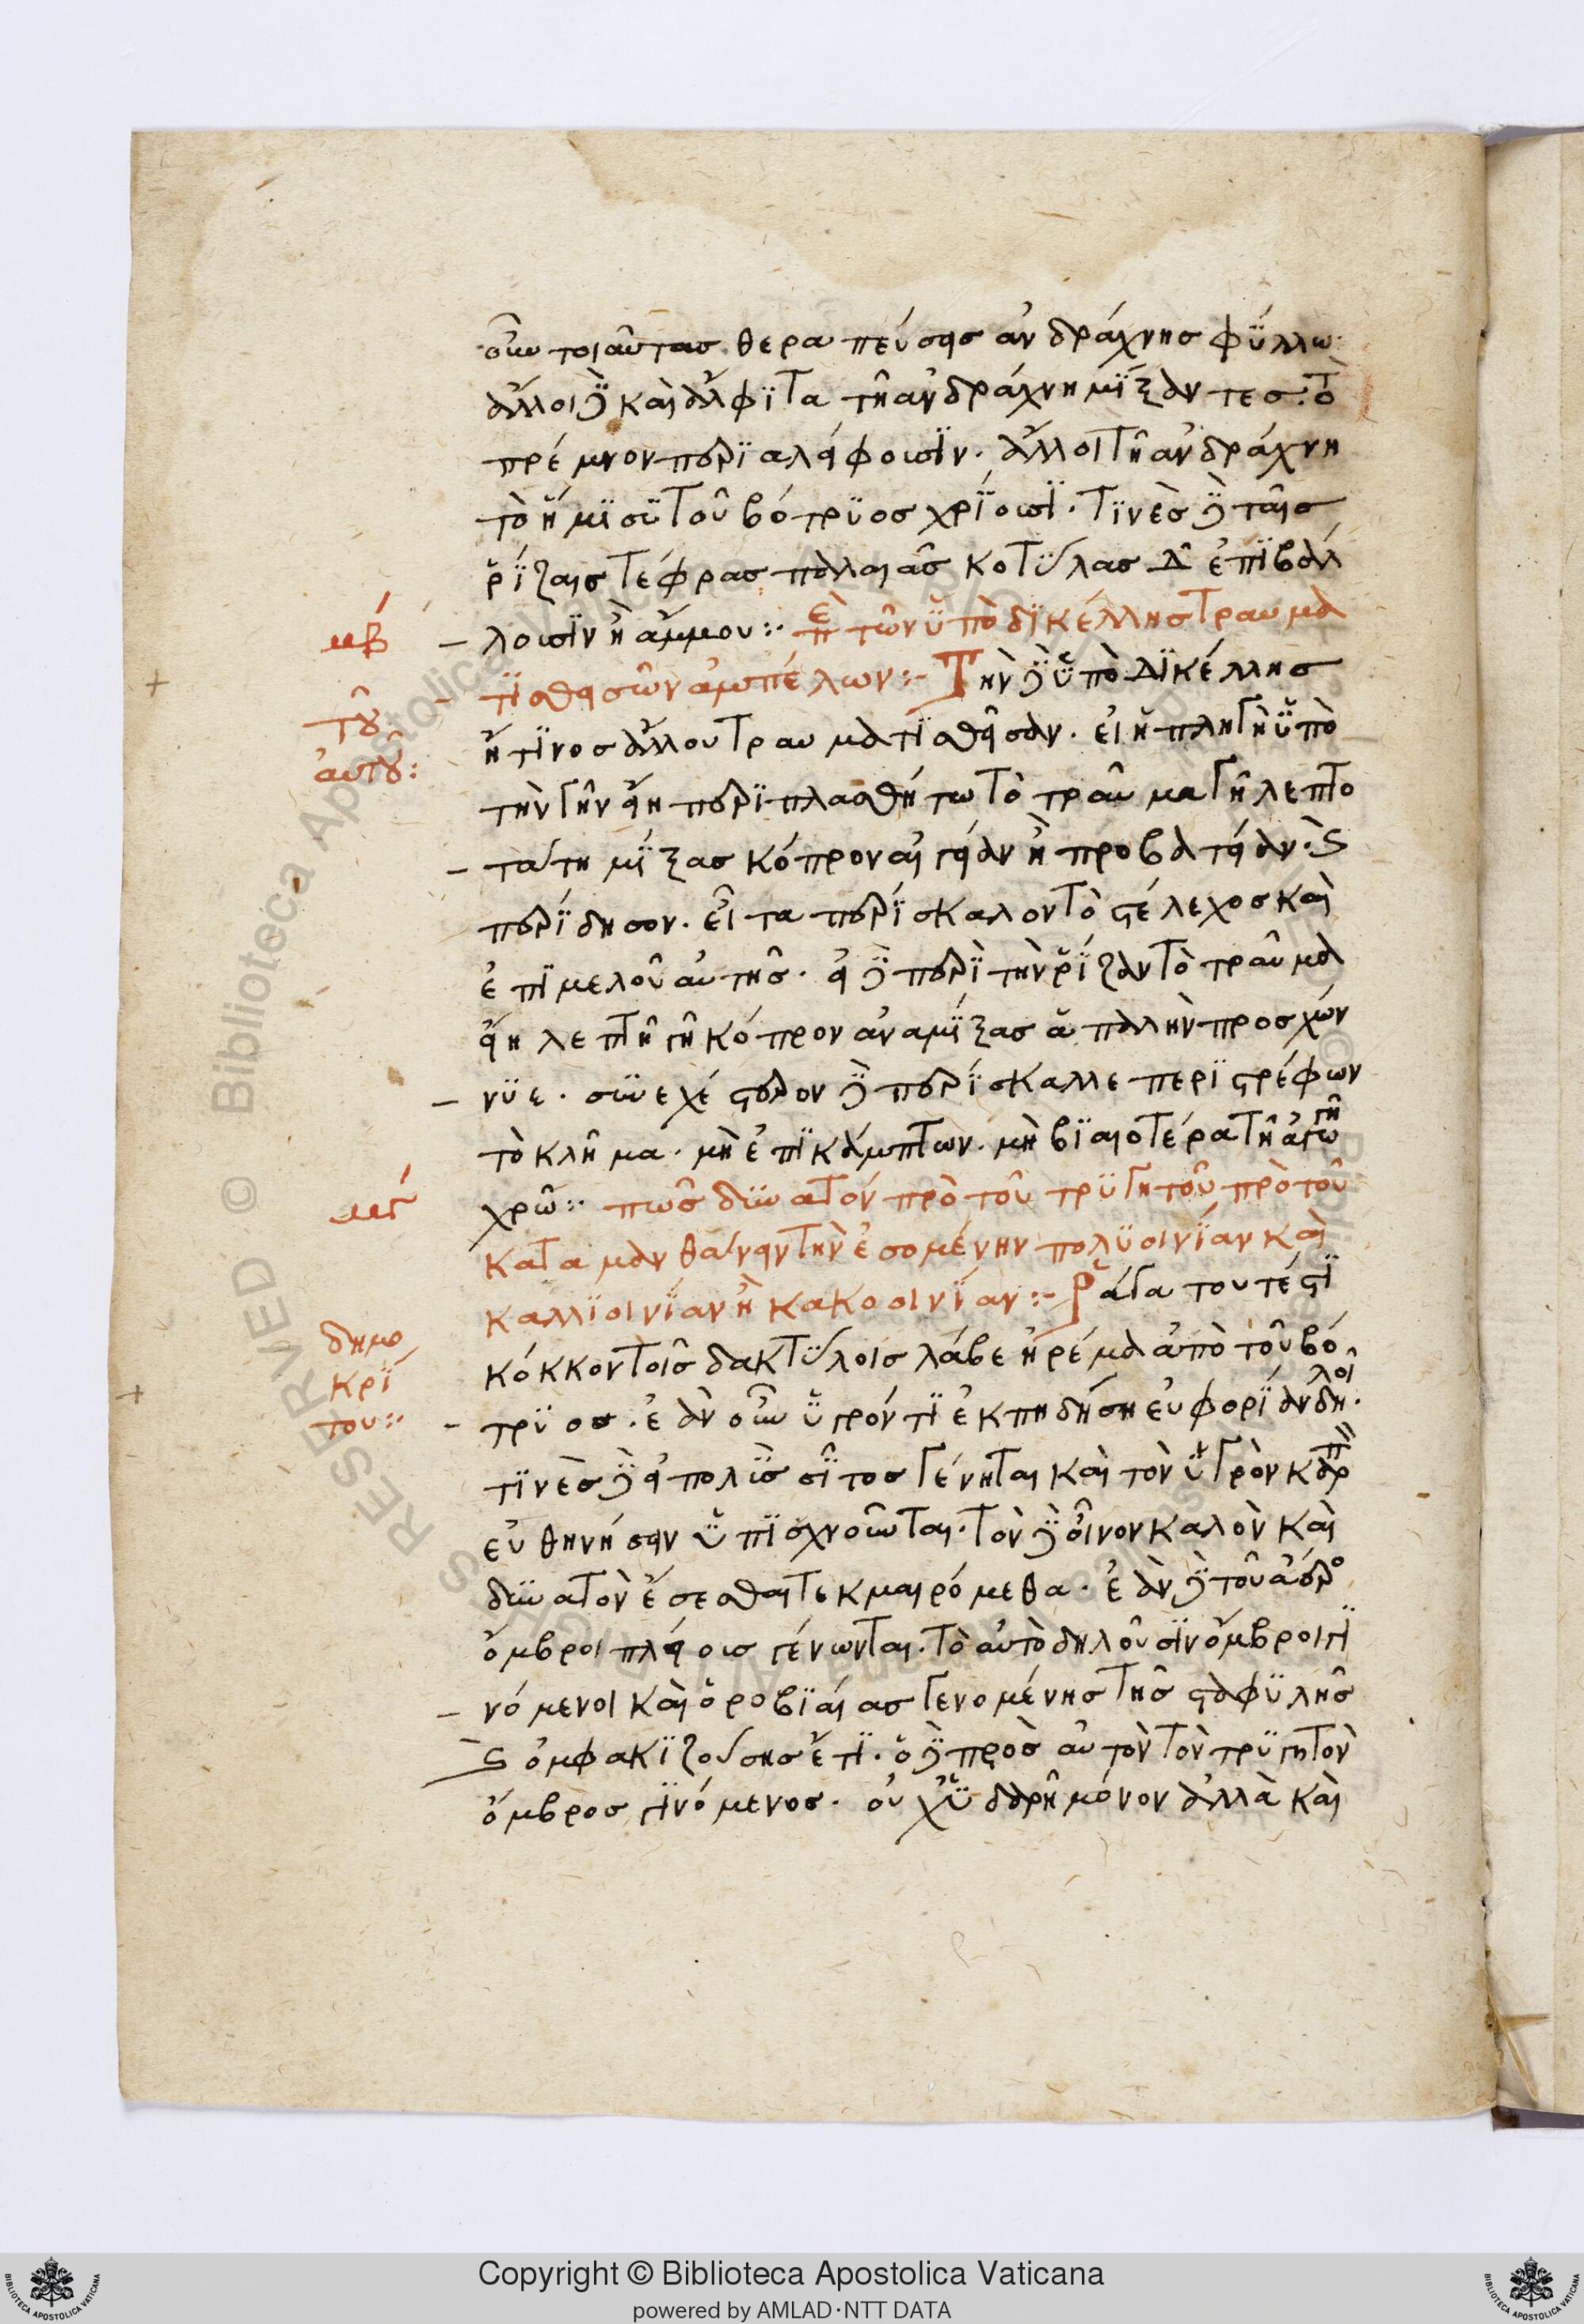 οὖν τοιαύτας θεραπεύσεις ἀνδράχνης φύλλω·
ἄλλοι δὲ καὶ ἄλφιτα τῆ ἀνδράχνη μίξαντες· τὸ
πρέμνον περιαλείφουσιν· ἄλλοι τῆ ἀνδράχνη
τὸ ἥμισυ τοῦ βότρυος χρίουσι· τινὲς δὲ ταῖς
ῥίζαις τέφρας παλαιᾶς κοτύλας δ ἐπιβάλ
μβ
λουσιν ἢ ἄμμου:· ἐπὶ τῶν ὑπὸ δικέλλης τραυμα
τισθεισῶν ἀμπέλων:- Τὴν δὲ ὑπὸ δικέλλης
τοῦ
αὐτοῦ:
ἤ τινος ἄλλου τραυματισθεῖσαν· εἰ ἡ πληγὴ ὑπὸ
τὴν γῆν εἴη περιπλασθήτω τὸ τραῦμα γῆ λεπτο
τάτη μίξας κόπρον αἰγείαν ἢ προβατείαν· καὶ
περίδησον· εἶτα περίσκαλον τὸ στέλεχος καὶ
ἐπιμελοῦ αὐτῆς· εἰ δὲ περὶ τὴν ῥίζαν τὸ τραῦμα
εἴη λεπτῆ γῆ κόπρον ἀναμίξας ἁπαλὴν προσχών
νυε· συνεχέστερον δὲ περίσκαλλε περιστρέφων
τὸ κλῆμα· μὴ ἐπικάμπτων· μὴ βιαιοτέρα τῆ ἀγωγῆ
μγ
χρῶ:· πῶς δυνατόν πρὸ τοῦ τρυγητοῦ πρὸ τοῦ
καταμανθάνειν τὴν ἐσομένην πολυοινίαν καὶ
καλλιοινίαν ἢ κακοοινίαν:- Ῥᾶγα τουτέστι
δημο
κρί
του:·
κόκκον τοῖς δακτύλοις λάβε ἠρέμα ἀπὸ τοῦ βό
τρυος· ἐὰν οὖν ὑγρόν τι ἐκπηδήση εὐφορίαν δηλοῖ·
τινὲς δὲ εἰ πολὺς σῖτος γένηται καὶ τὸν ὑγρὸν καρπὸν
εὐθηνήσειν ὑπισχνοῦνται· τὸν δὲ οἶνον καλὸν καὶ
δυνατὸν ἔσεσθαι τεκμαιρόμεθα· ἐὰν δὲ τοῦ ἀέρος
ὄμβροι πλείους γένωνται· τὸ αὐτὸ δηλοῦσιν ὄμβροι γι
νόμενοι καὶ ὀροβιαίας γενομένης τῆς σταφυλῆς
καὶ ὀμφακιζούσης ἔτι· ὁ δὲ πρὸς αὐτὸν τὸν τρυγητὸν
ὄμβρος γινόμενος· οὐχ ὑδαρῆ μόνον ἀλλὰ καὶ
Copyright © Biblioteca Apostolica Vaticana
powered by AMLAD·NTT DATA